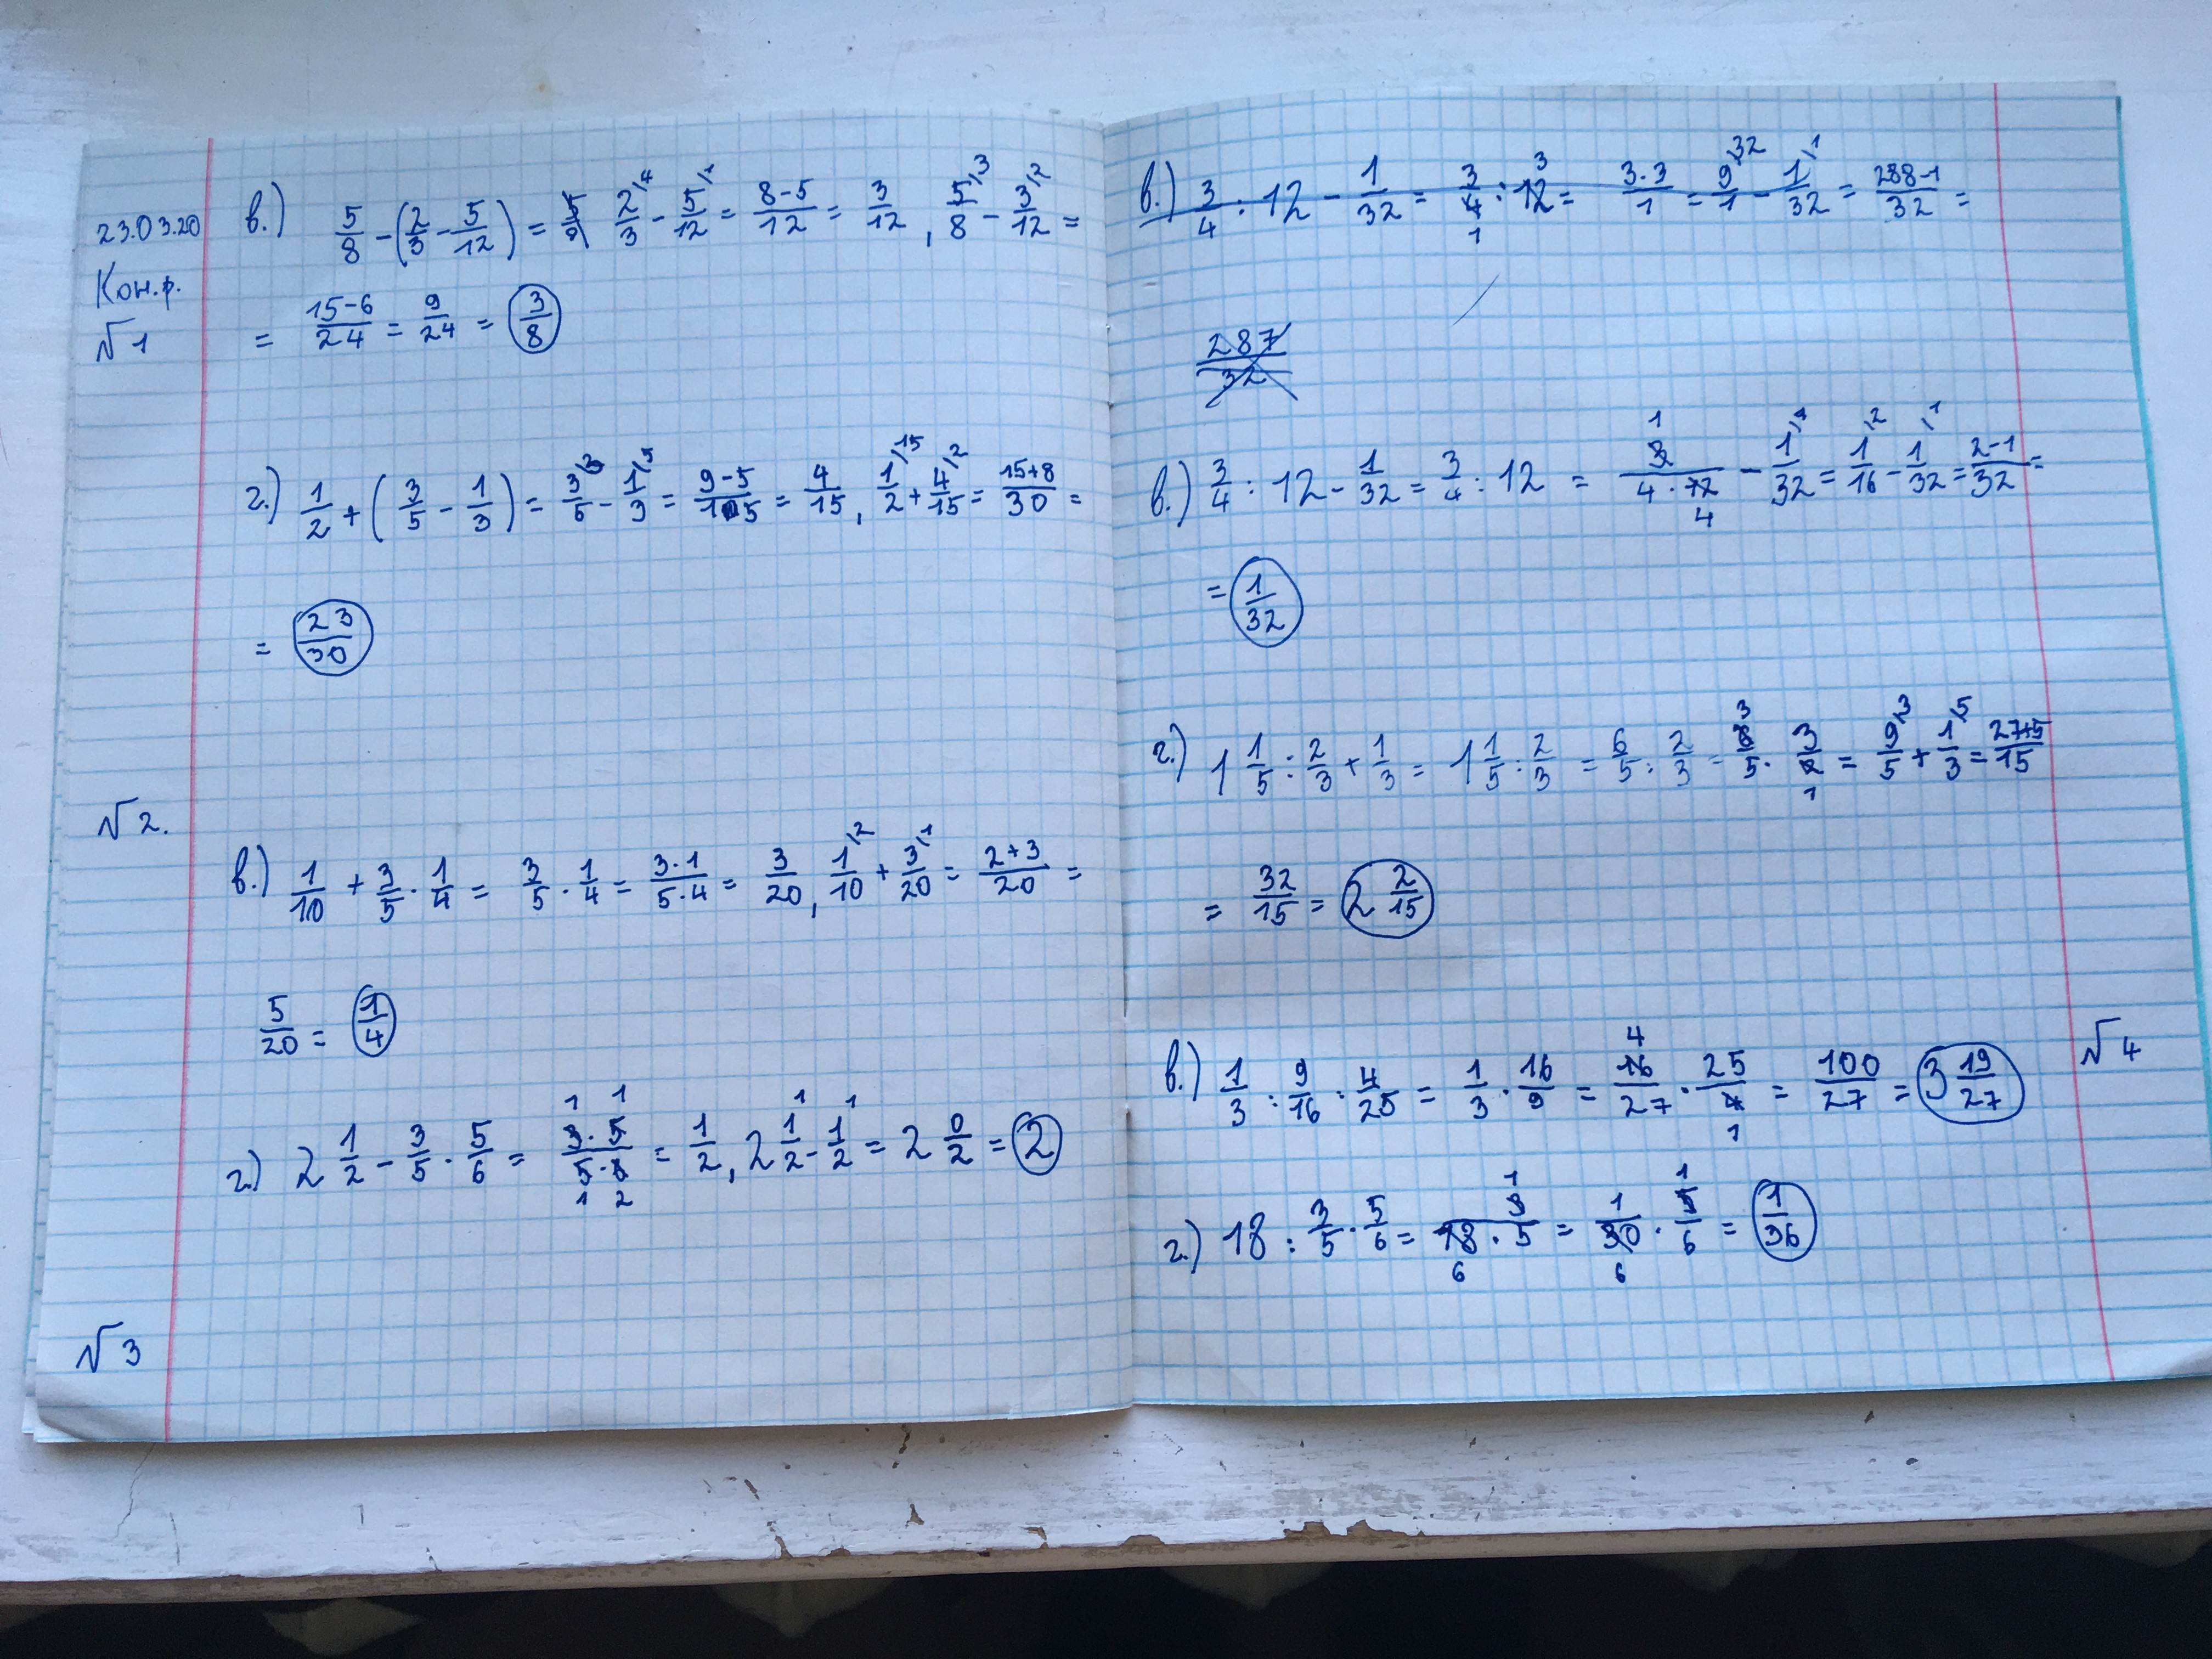 23.03.20
Кон.р.
√1
в.) 5/8 - (2/3 - 5/12) = 2/3\4 - 5/12\1 = 8-5/12 = 3/12, 5/8\3 - 3/12\2 =
= 15-6/24 = 9/24 = 3/8
г.) 1/2 + (3/5 - 1/3) = 3/5\3 - 1/3\5 = 9-5/15 = 4/15, 1/2\15 + 4/15\2 = 15+8/30 =
= 23/30
√2.
в.) 1/10 + 3/5 · 1/4 = 3/5 · 1/4 = 3·1/5·4 = 3/20, 1/10\2 + 3/20\1 = 2+3/20 =
5/20 = 1/4
г.) 2 1/2 - 3/5 · 5/6 = 3·5/5·6 = 1/2, 2 1/2\1 - 1/2\1 = 2 0/2 = 2
√3
в.) 3/4 : 12 - 1/32 = 3/4 : 12 = 3·3/1 = 9/1\32 - 1/32\1 = 288-1/32 =
287/32
в.) 3/4 : 12 - 1/32 = 3/4 : 12 = 3/4·12 - 1/32 = 1/16\2 - 1/32\1 = 2-1/32 =
= 1/32
г.) 1 1/5 : 2/3 + 1/3 = 1 1/5 : 2/3 = 6/5 : 2/3 = 6/5 · 3/2 = 9/5\3 + 1/3\5 = 27+5/15
= 32/15 = 2 2/15
√4
в.) 1/3 : 9/16 : 4/25 = 1/3 · 16/9 = 16/27 · 25/4 = 100/27 = 3 19/27
г.) 18 : 3/5 · 5/6 = 3/18·5 = 1/30 · 5/6 = 1/36